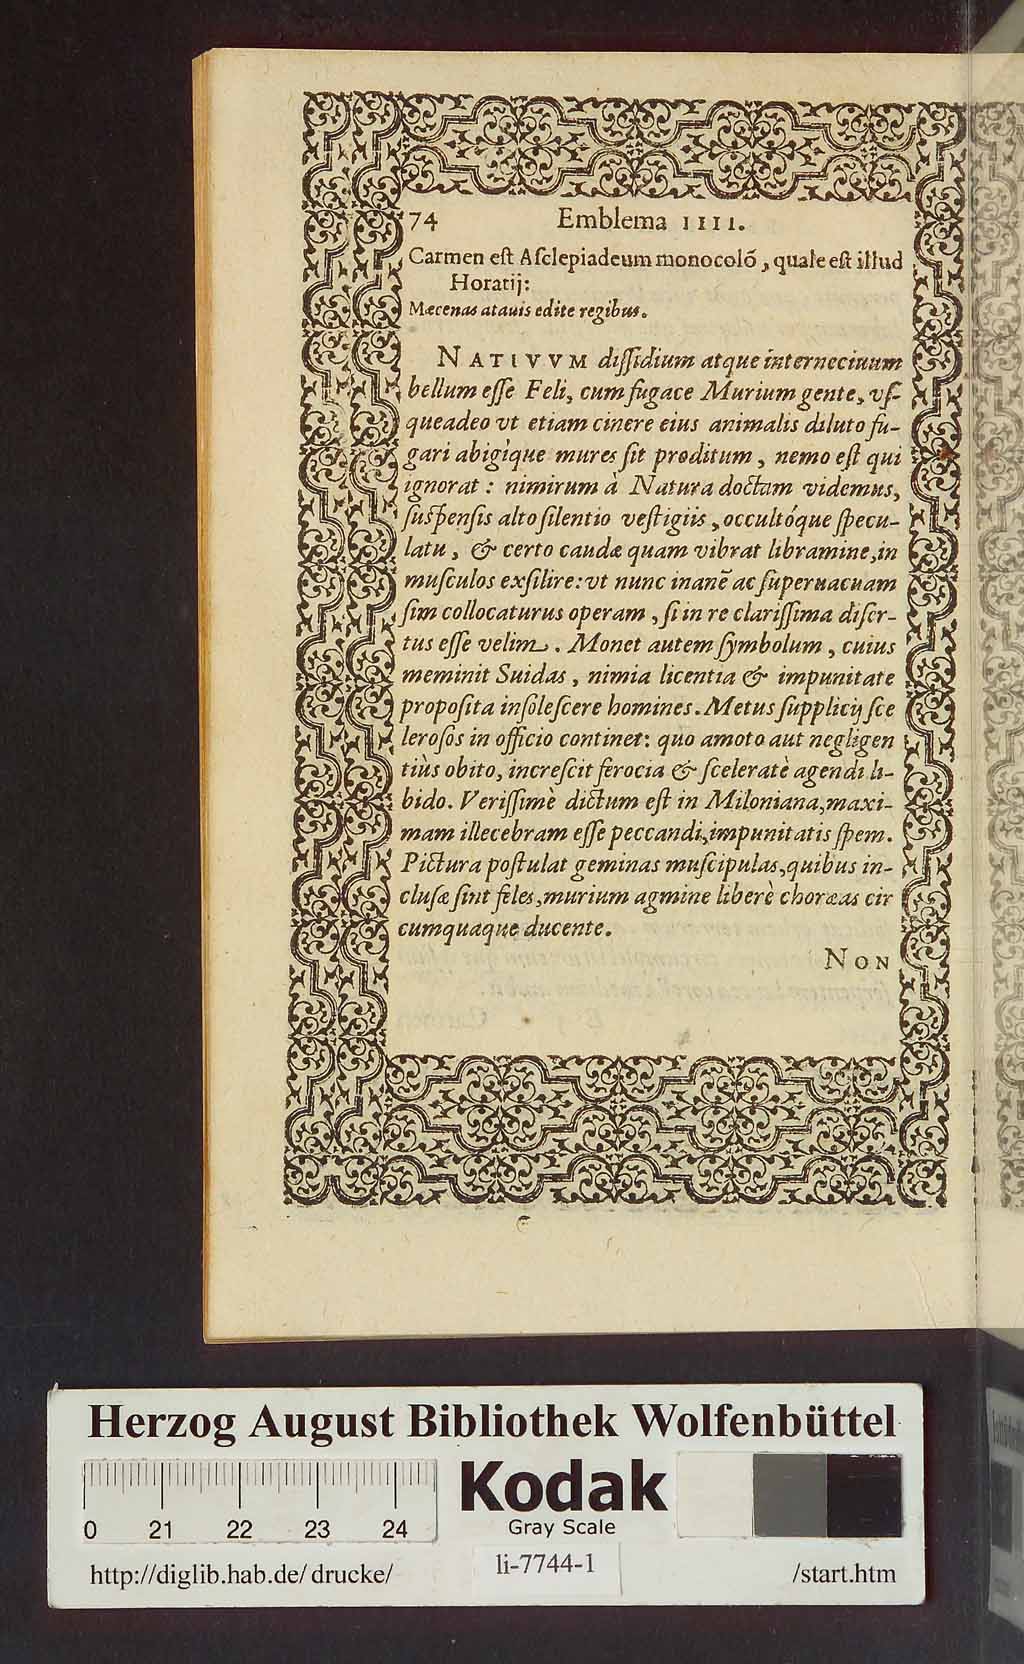 74 Emblema IIII.
Carmen eſt Aſclepiadeum monocolõ, quale eſt illud
Horatij:
Mæcenas atauis edite regibus.
NATIVVM diſſidium atque internecinum
bellum eſſe Feli, cum fugace Murium gente, vſ-
queadeo vt etiam cinere eius animalis diluto fu-
gari abigíque mures ſit proditum, nemo eſt qui
ignorat: nimirum à Natura doctam videmus,
ſuſpenſis alto ſilentio veſtigiis, occultóque ſpecu-
latu, & certo caudæ quam vibrat libramine, in
muſculos exſilire: vt nunc inanẽ ac ſuperuacuam
ſim collocaturus operam, ſi in re clariſſima diſer-
tus eſſe velim. Monet autem ſymbolum, cuius
meminit Suidas, nimia licentia & impunitate
propoſita inſoleſcere homines. Metus ſupplicij ſce
leroſos in officio continet: quo amoto aut negligen
tiùs obito, increſcit ferocia & ſceleratè agendi li-
bido. Veriſſimè dictum eſt in Miloniana, maxi-
mam illecebram eſſe peccandi, impunitatis ſpem.
Pictura poſtulat geminas muſcipulas, quibus in-
cluſæ ſint feles, murium agmine liberè choræas cir
cumquaque ducente.
NON
Herzog August Bibliothek Wolfenbüttel
0 21 22 23 24
Kodak
Gray Scale
http://diglib.hab.de/drucke/ li-7744-1 /start.htm